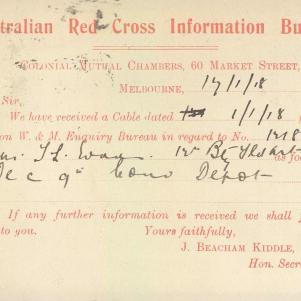 tralian Red Cross Information Bu
Colonial Mutual Chambers, 60 Market Street,
Melbourne, 17/1/18
Sir,
We have received a Cable dated 1/1/18
on W. & M. Enquiry Bureau in regard to No. 1218
as fo
Dec 9th Depot
If any further information is received we shall
to you. Yours faithfully,
J. BEACHAM KIDDLE,
Hon. Secre